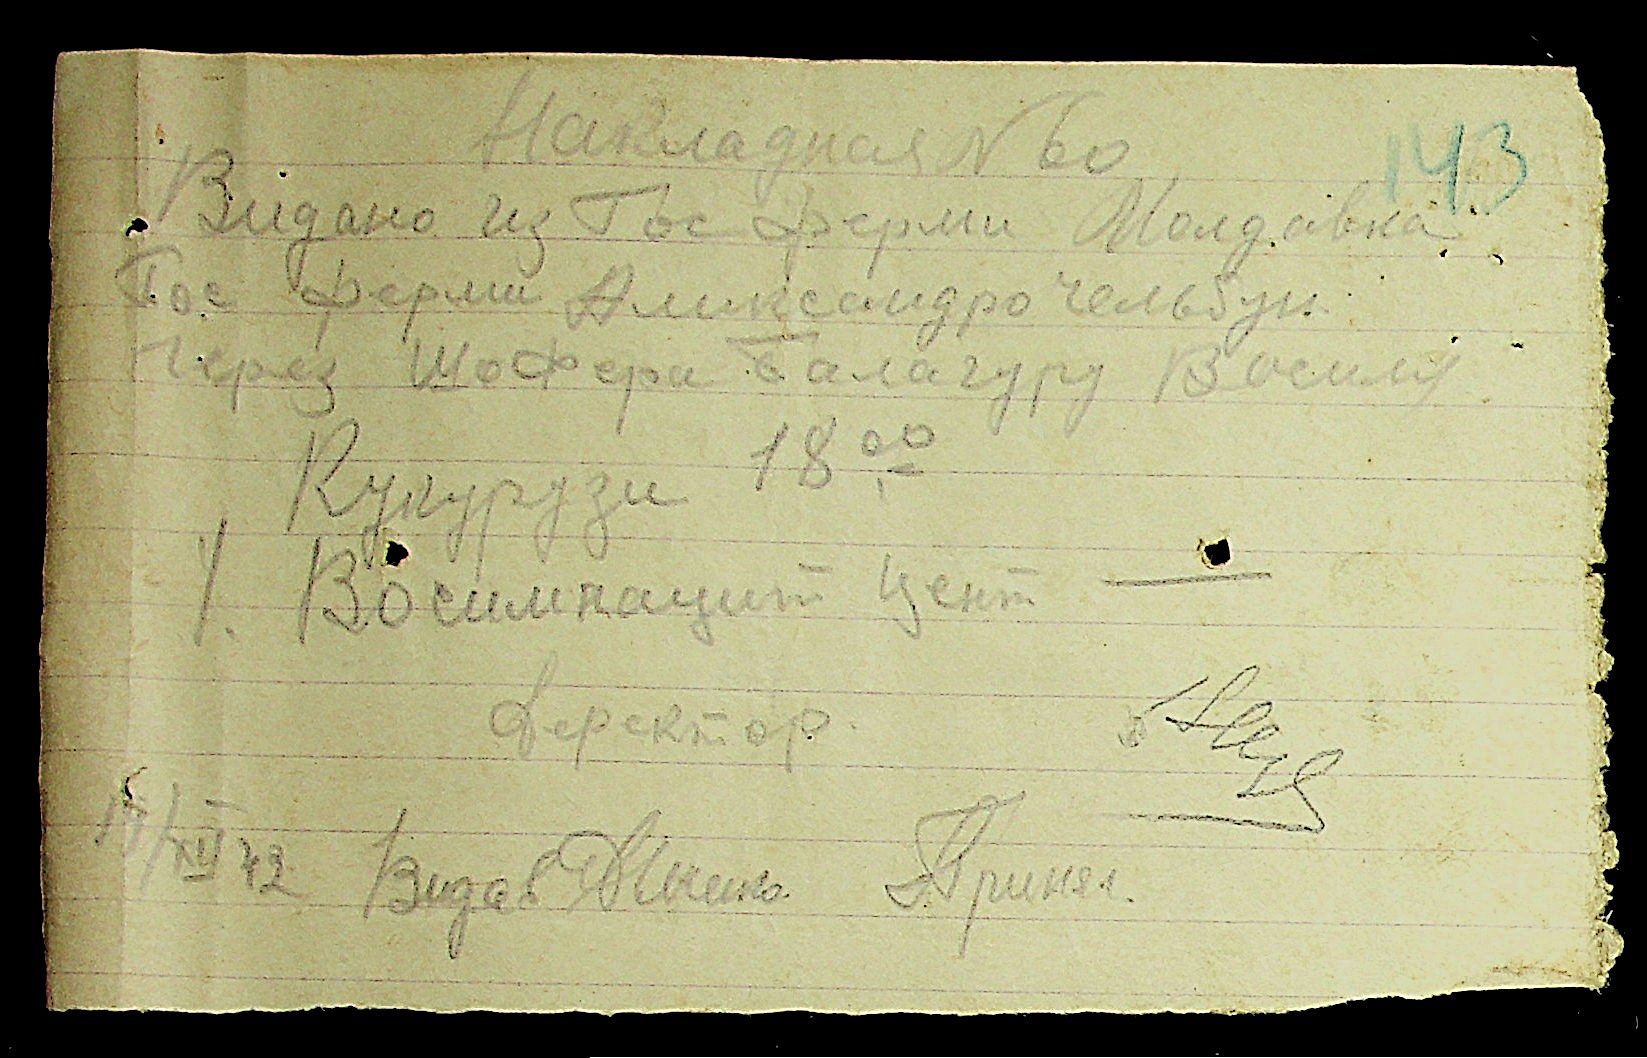 Накладная N 60
143
Видано из Гос ферми Молдавка
Гос ферми Александрочельбун
Через Шофера Балагуру Восиля
Кукурузи 18 00
1. Восимнацит цент —
Деректор.
17/XII 42 Видав Принял.